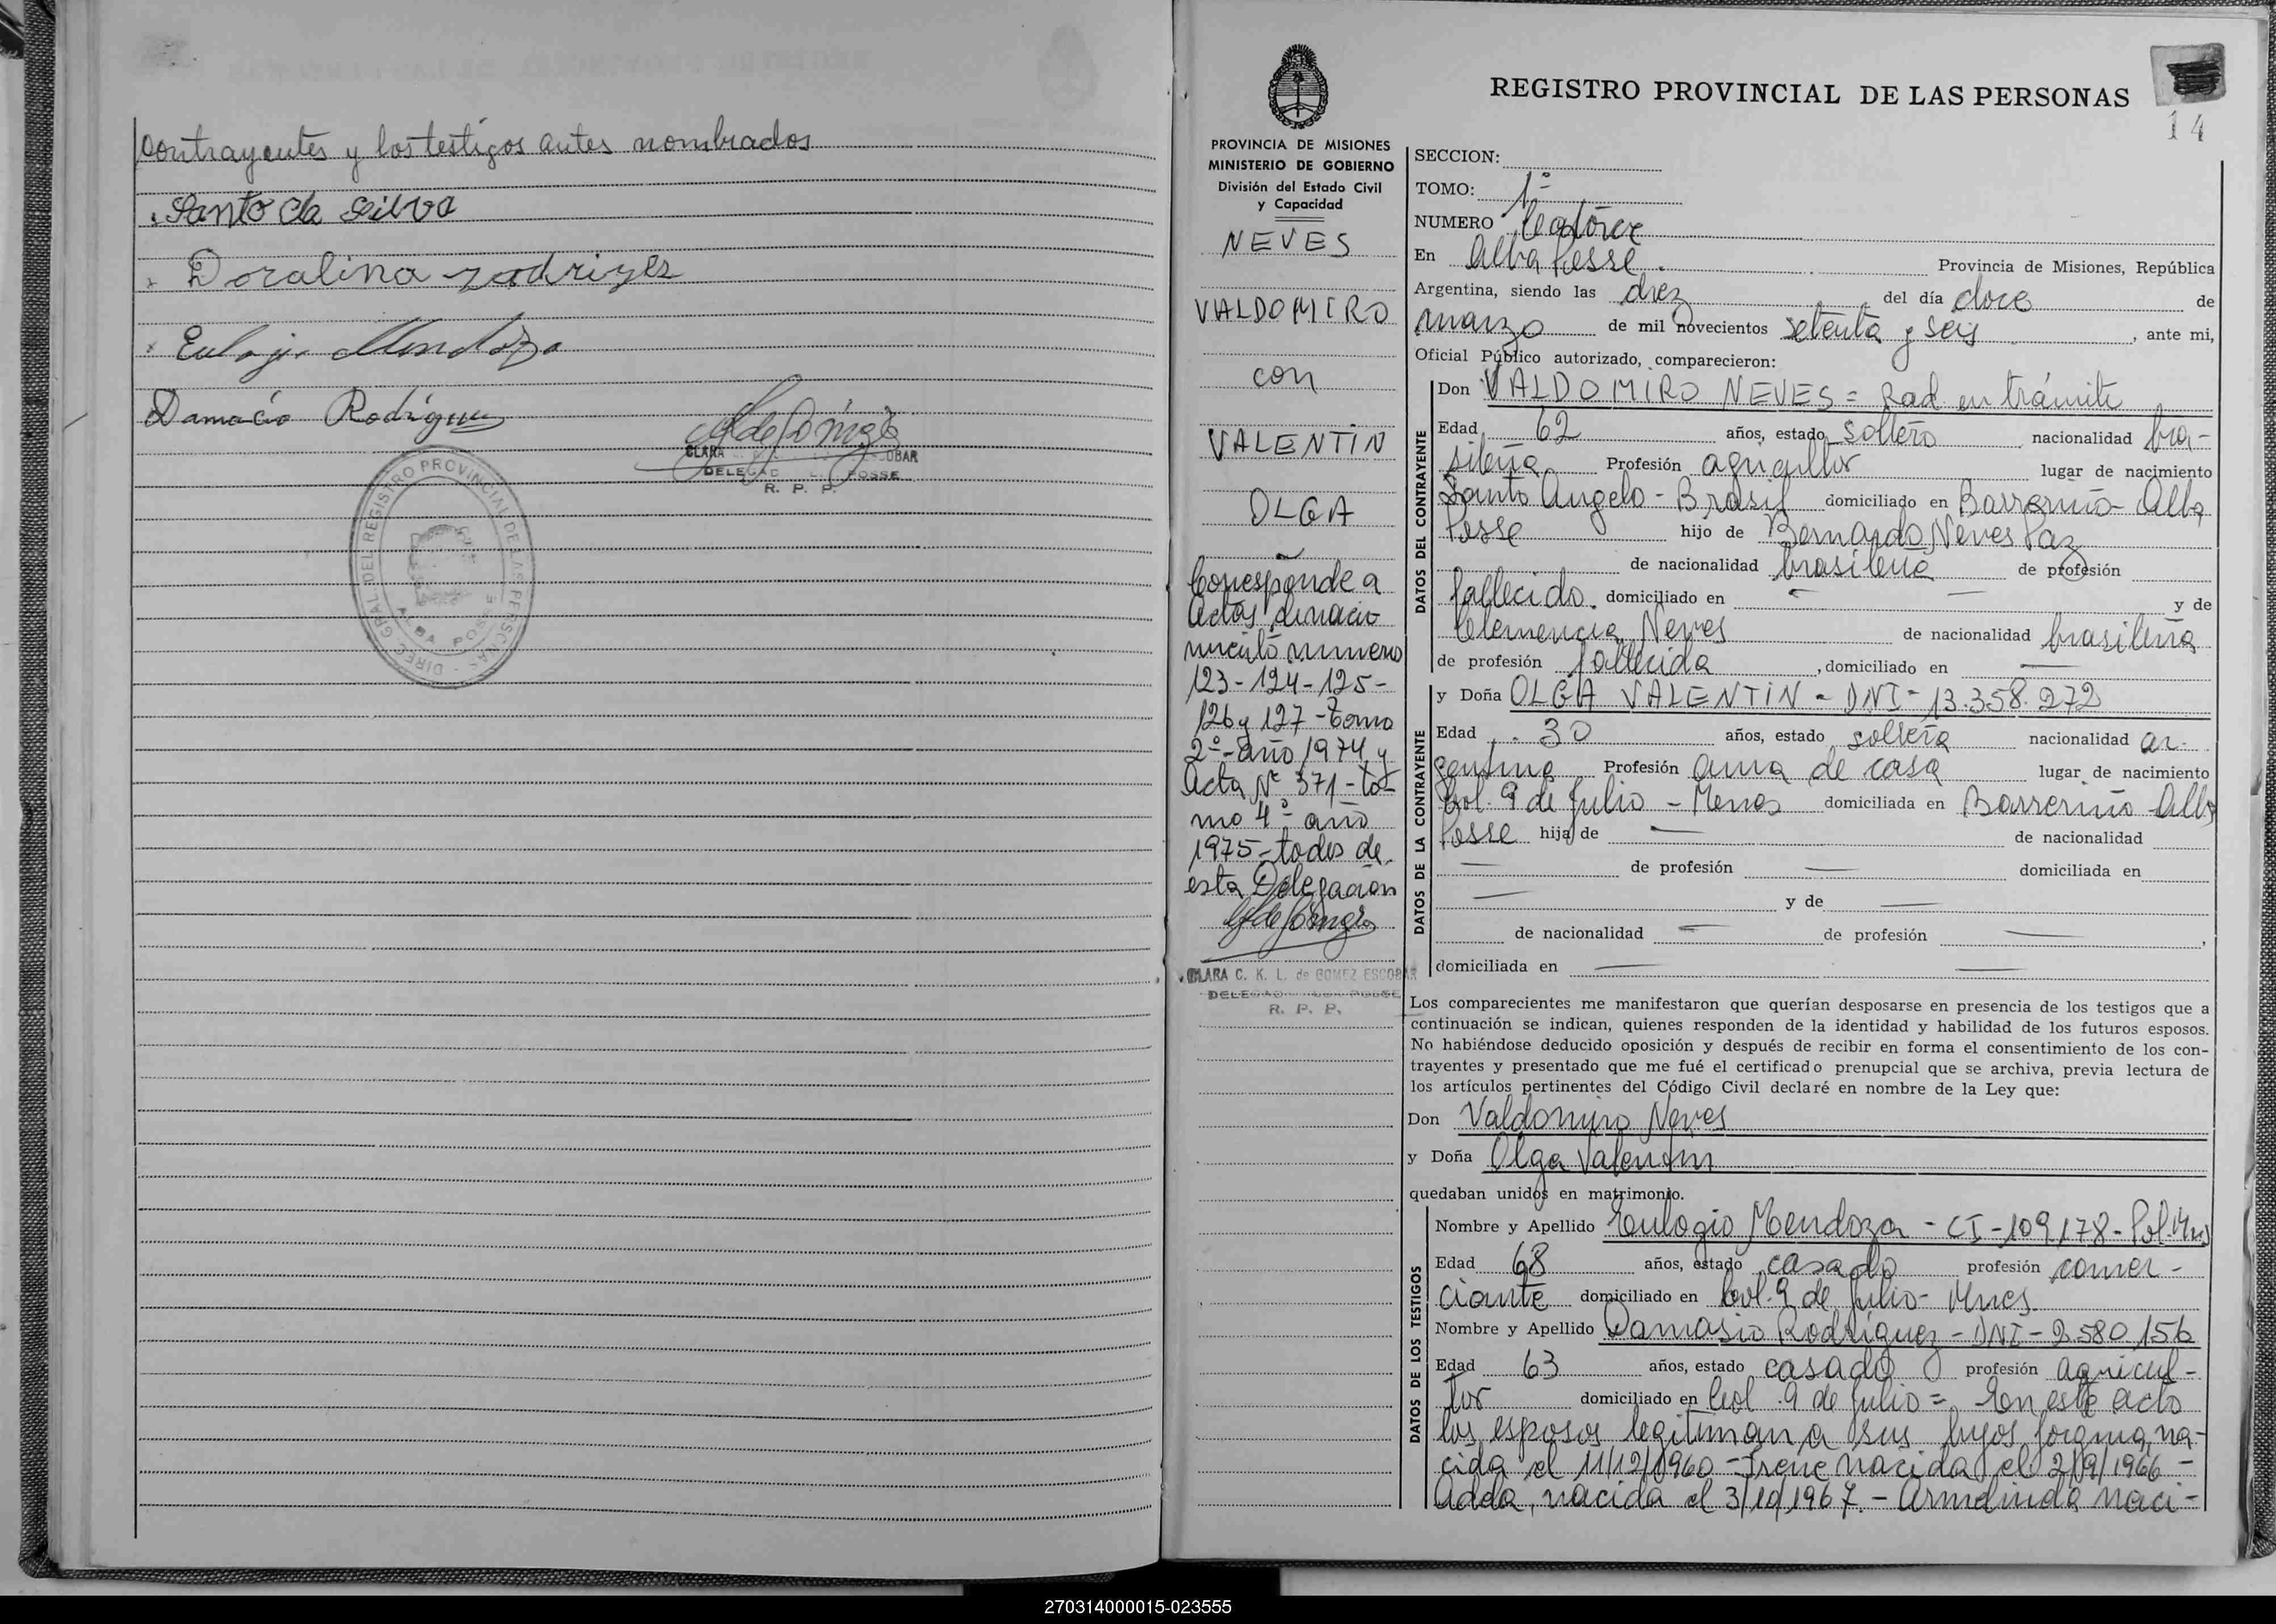 contrayentes y los testigos antes nombrados
Santo da Silva
Doralina rodriguez
Eulogio Mendoza
Damacio Rodriguez
CLARA OBAR
DELEGAC POSSE
R. P. P.
DIREC. GRAL. DEL REGISTRO PROVINCIAL DE LAS PERSONAS -
ALBA POSSE
PROVINCIA DE MISIONES
MINISTERIO DE GOBIERNO
División del Estado Civil
y Capacidad
NEVES
VALDOMIRO
con
VALENTIN
OLGA
Corresponde a
Actas de nacio
miento numero
123-124-125-
126 y 127-Tomo
2º-año 1974 y
Acta Nº 371-to-
mo 4º año
1975-todos de
esta Delegación
CLARA C. K. L. de GOMEZ ESCOBAR
R. P. P.
REGISTRO PROVINCIAL DE LAS PERSONAS
14
SECCION:
TOMO: 1º
NUMERO Catorce
En Alba Posse. Provincia de Misiones, República
Argentina, siendo las diez del día doce de
marzo de mil novecientos setenta y seis, ante mi,
Oficial Público autorizado, comparecieron:
DATOS DEL CONTRAYENTE
Don VALDOMIRO NEVES = Rad. en trámite
Edad 62 años, estado soltero nacionalidad bra-
sileña Profesión agricultor lugar de nacimiento
Santo Angelo - Brasil domiciliado en Barrerito - Alba
Posse hijo de Bernardo Neves Paz
de nacionalidad brasileña de profesión
fallecido. domiciliado en — — y de
Clemencia Neves de nacionalidad brasileña
de profesión fallecida, domiciliado en —
DATOS DE LA CONTRAYENTE
y Doña OLGA VALENTIN - DNI - 13.358.272
Edad 30 años, estado soltera nacionalidad ar-
gentina Profesión ama de casa lugar de nacimiento
Col. 9 de Julio - Mnes domiciliada en Barrerito - Alba
Posse hija de — de nacionalidad
— de profesión — domiciliada en
— y de —
de nacionalidad — de profesión —,
domiciliada en — —
Los comparecientes me manifestaron que querían desposarse en presencia de los testigos que a
continuación se indican, quienes responden de la identidad y habilidad de los futuros esposos.
No habiéndose deducido oposición y después de recibir en forma el consentimiento de los con-
trayentes y presentado que me fué el certificado prenupcial que se archiva, previa lectura de
los artículos pertinentes del Código Civil declaré en nombre de la Ley que:
Don Valdomiro Neves
y Doña Olga Valentin
quedaban unidos en matrimonio.
DATOS DE LOS TESTIGOS
Nombre y Apellido Eulogio Mendoza - CI - 109,178 - Pol. Mnes
Edad 68 años, estado casado profesión comer-
ciante domiciliado en Col. 9 de Julio - Mnes.
Nombre y Apellido Damasio Rodriguez - DNI - 2.580.156
Edad 63 años, estado casado profesión agricul-
tor domiciliado en Col. 9 de Julio = En este acto
los esposos legitiman a sus hijos na-
cida el 11/12/1960 - Irene nacida el 2/9/1966 -
Adda, nacida el 3/10/1967 - Armelinda naci-
270314000015-023555